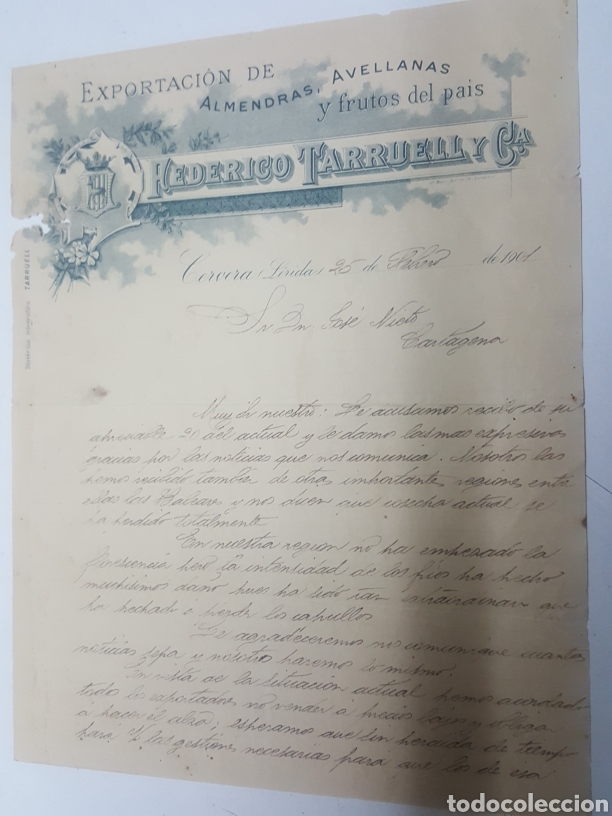 EXPORTACIÓN DE
ALMENDRAS, AVELLANAS
y frutos del pais
FEDERICO TARRUELL Y Cª
TARRUELL
Cervera Lérida 25 de Febrero de 1901
Sr Dn José Nieto
Cartagena
Muy Sr nuestro: Le acusamos recibo de su
apreciable 20 del actual y le damos las mas expresivas
gracias por las noticias que nos comunica. Nosotros las
hemos recibido tambien de otras importantes regiones entre
ellas las Baleares y nos dicen que cosecha actual se
ha perdido totalmente
En nuestra region no ha empezado la
floresciencia pero la intensidad de los frios ha hecho
muchisimo daño pues ha sido tan que
ha hechado a perder los capullos
Le agradeceremos nos comunique cuantas
noticias sepa y nosotros haremos lo mismo.
En vista de la situacion actual hemos acordado
todos los exportadores no vender á precios bajos y
á hacer el alza; esperamos que sin perdida de tiempo
hara V las gestiones necesarias para que los de esa
todocoleccion